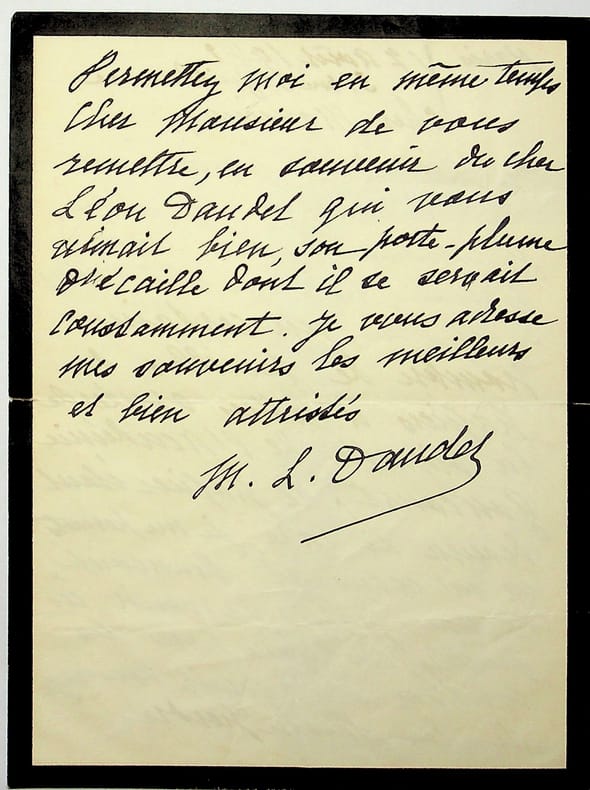 Permettez moi en même temps
Cher Monsieur de vous
remettre, en souvenir du cher
Léon Daudet qui vous
aimait bien, son porte-plume
d'écaille dont il se servait
constamment. Je vous adresse
mes souvenirs les meilleurs
et bien attristés
M. L. Daudet